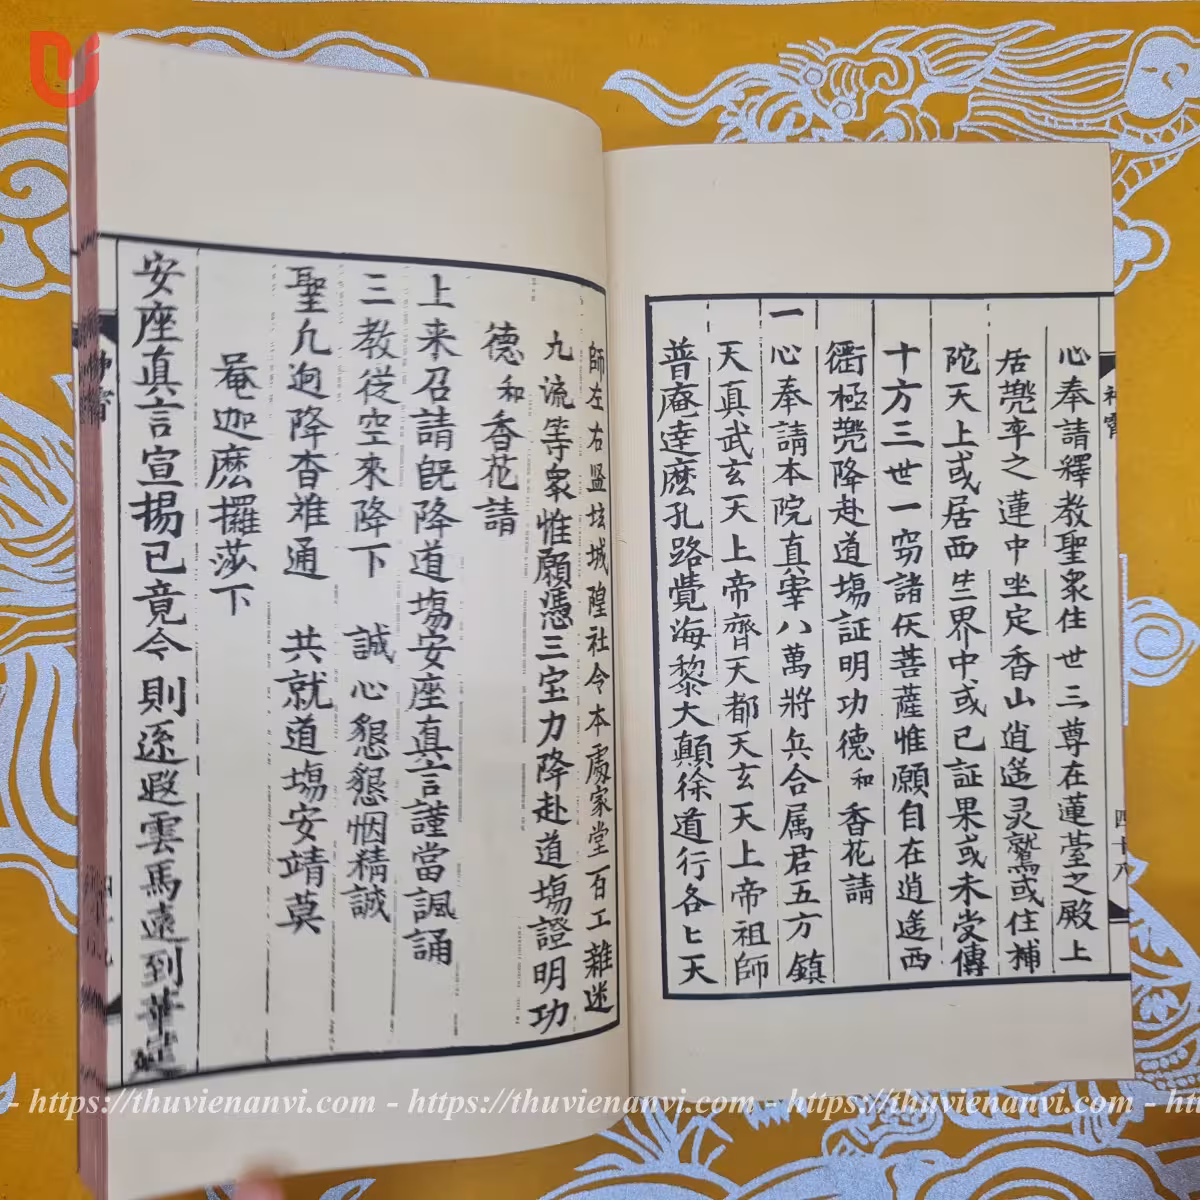 心奉請釋教聖衆住世三尊在蓮臺之殿上
居兠率之蓮中坐定香山逍遙灵鷲或住補
陀天上或居西生界中或已証果或未受傳
十方三世一窃諸仸菩薩惟願自在逍遙西
衝極兠降赴道塲証明功德和香花請
一心奉請本院真宰八萬將兵合属君五方鎮
天真武玄天上帝齊天都天玄天上帝祖師
普庵達麽孔路覺海黎大顛徐道行各匕天
四十八
師左右监坛城隍社令本處家堂百工雜迷
九流等衆惟願憑三宝力降赴道塲證明功
德和香花請
上来召請旣降道塲安座真言謹當諷誦
三教從空來降下 誠心懇懇悃精誠
聖凢迥降杳难通 共就道塲安靖莫
菴迦麽攞莎下
安座真言宣揚已竟令則逐遐雲馬遠到華筵
- https://thuvienanvi.com - https://thuvienanvi.com - https://thuvienanvi.com -